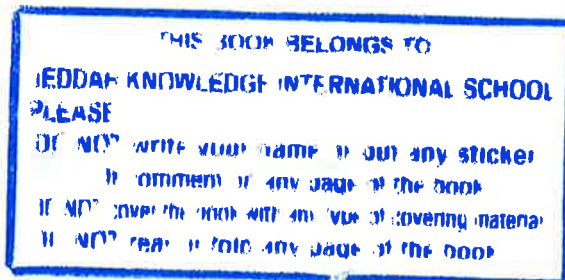 THIS BOOK BELONGS TO
JEDDAH KNOWLEDGE INTERNATIONAL SCHOOL
PLEASE
DO NOT write your name or put any sticker
or comment on any page of the book
DO NOT cover the book with any type of covering material
DO NOT tear or fold any page of the book